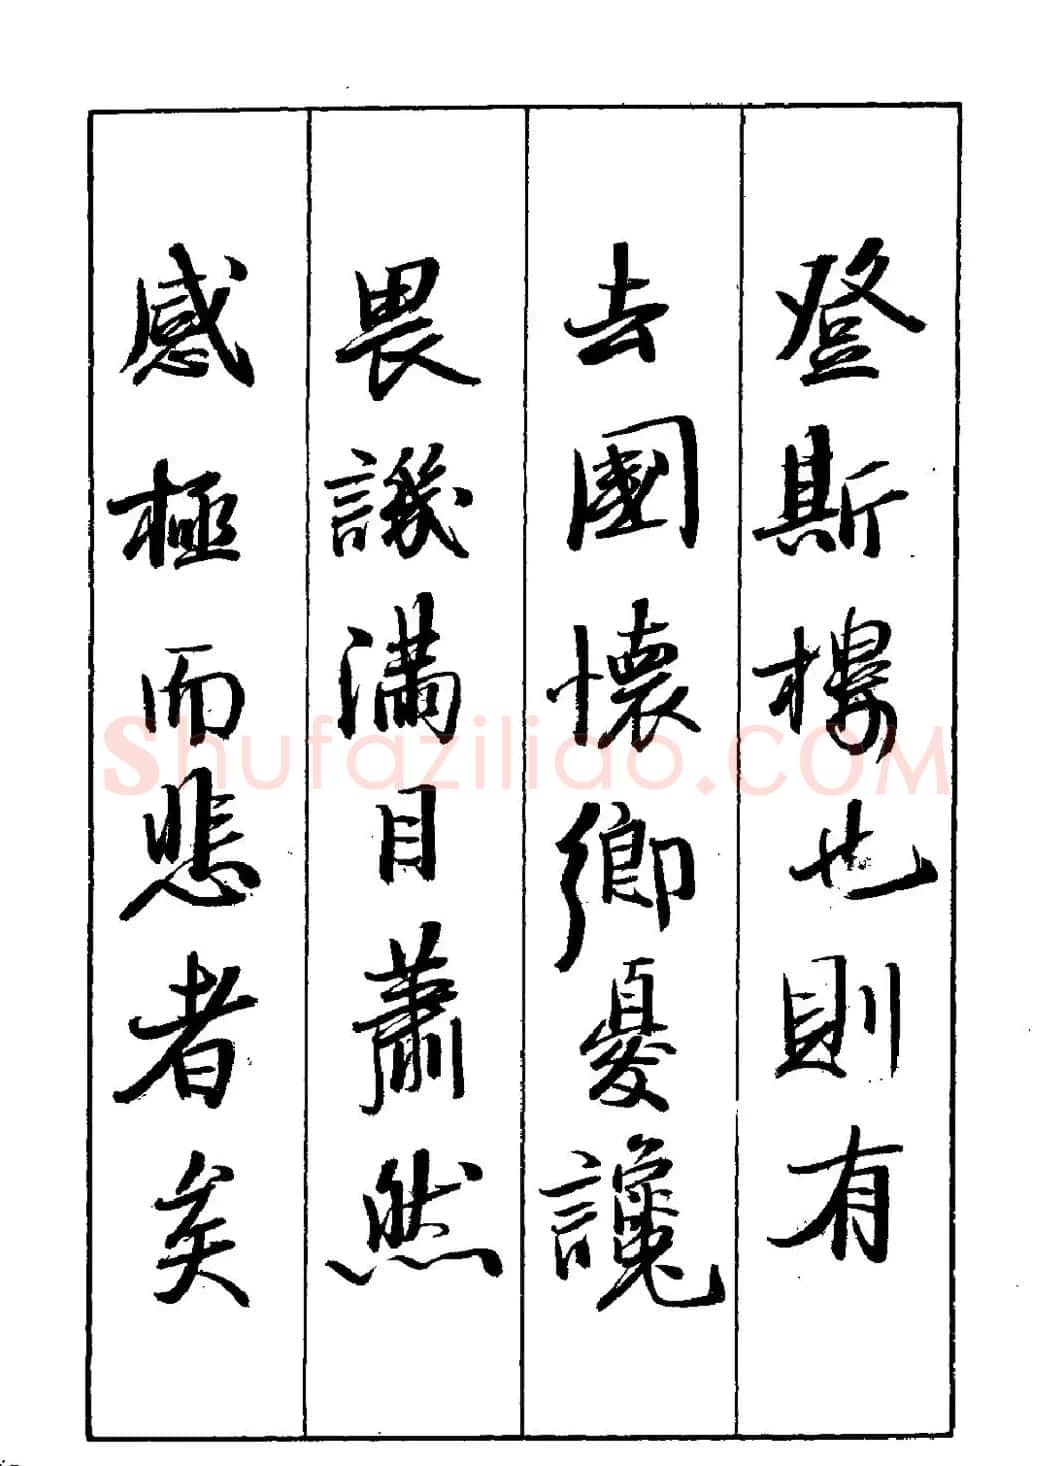 登斯樓也則有
去國懷鄉憂讒
畏譏滿目蕭然
感極而悲者矣
Shufaziliao.COM